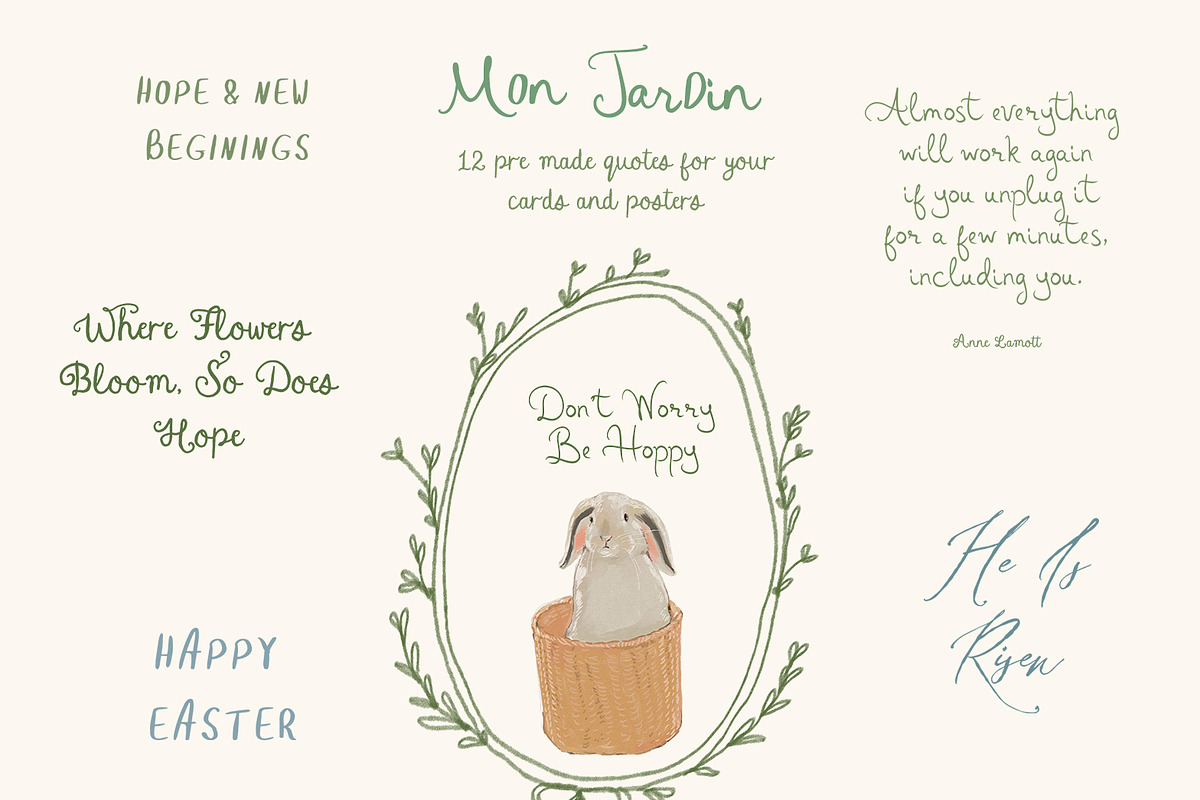 Mon Jardin
12 pre made quotes for your
cards and posters
HOPE & NEW
BEGININGS
Almost everything
will work again
if you unplug it
for a few minutes,
including you.
Anne Lamott
Where Flowers
Bloom, So Does
Hope
Don't Worry
Be Hoppy
He Is
Risen
HAPPY
EASTER